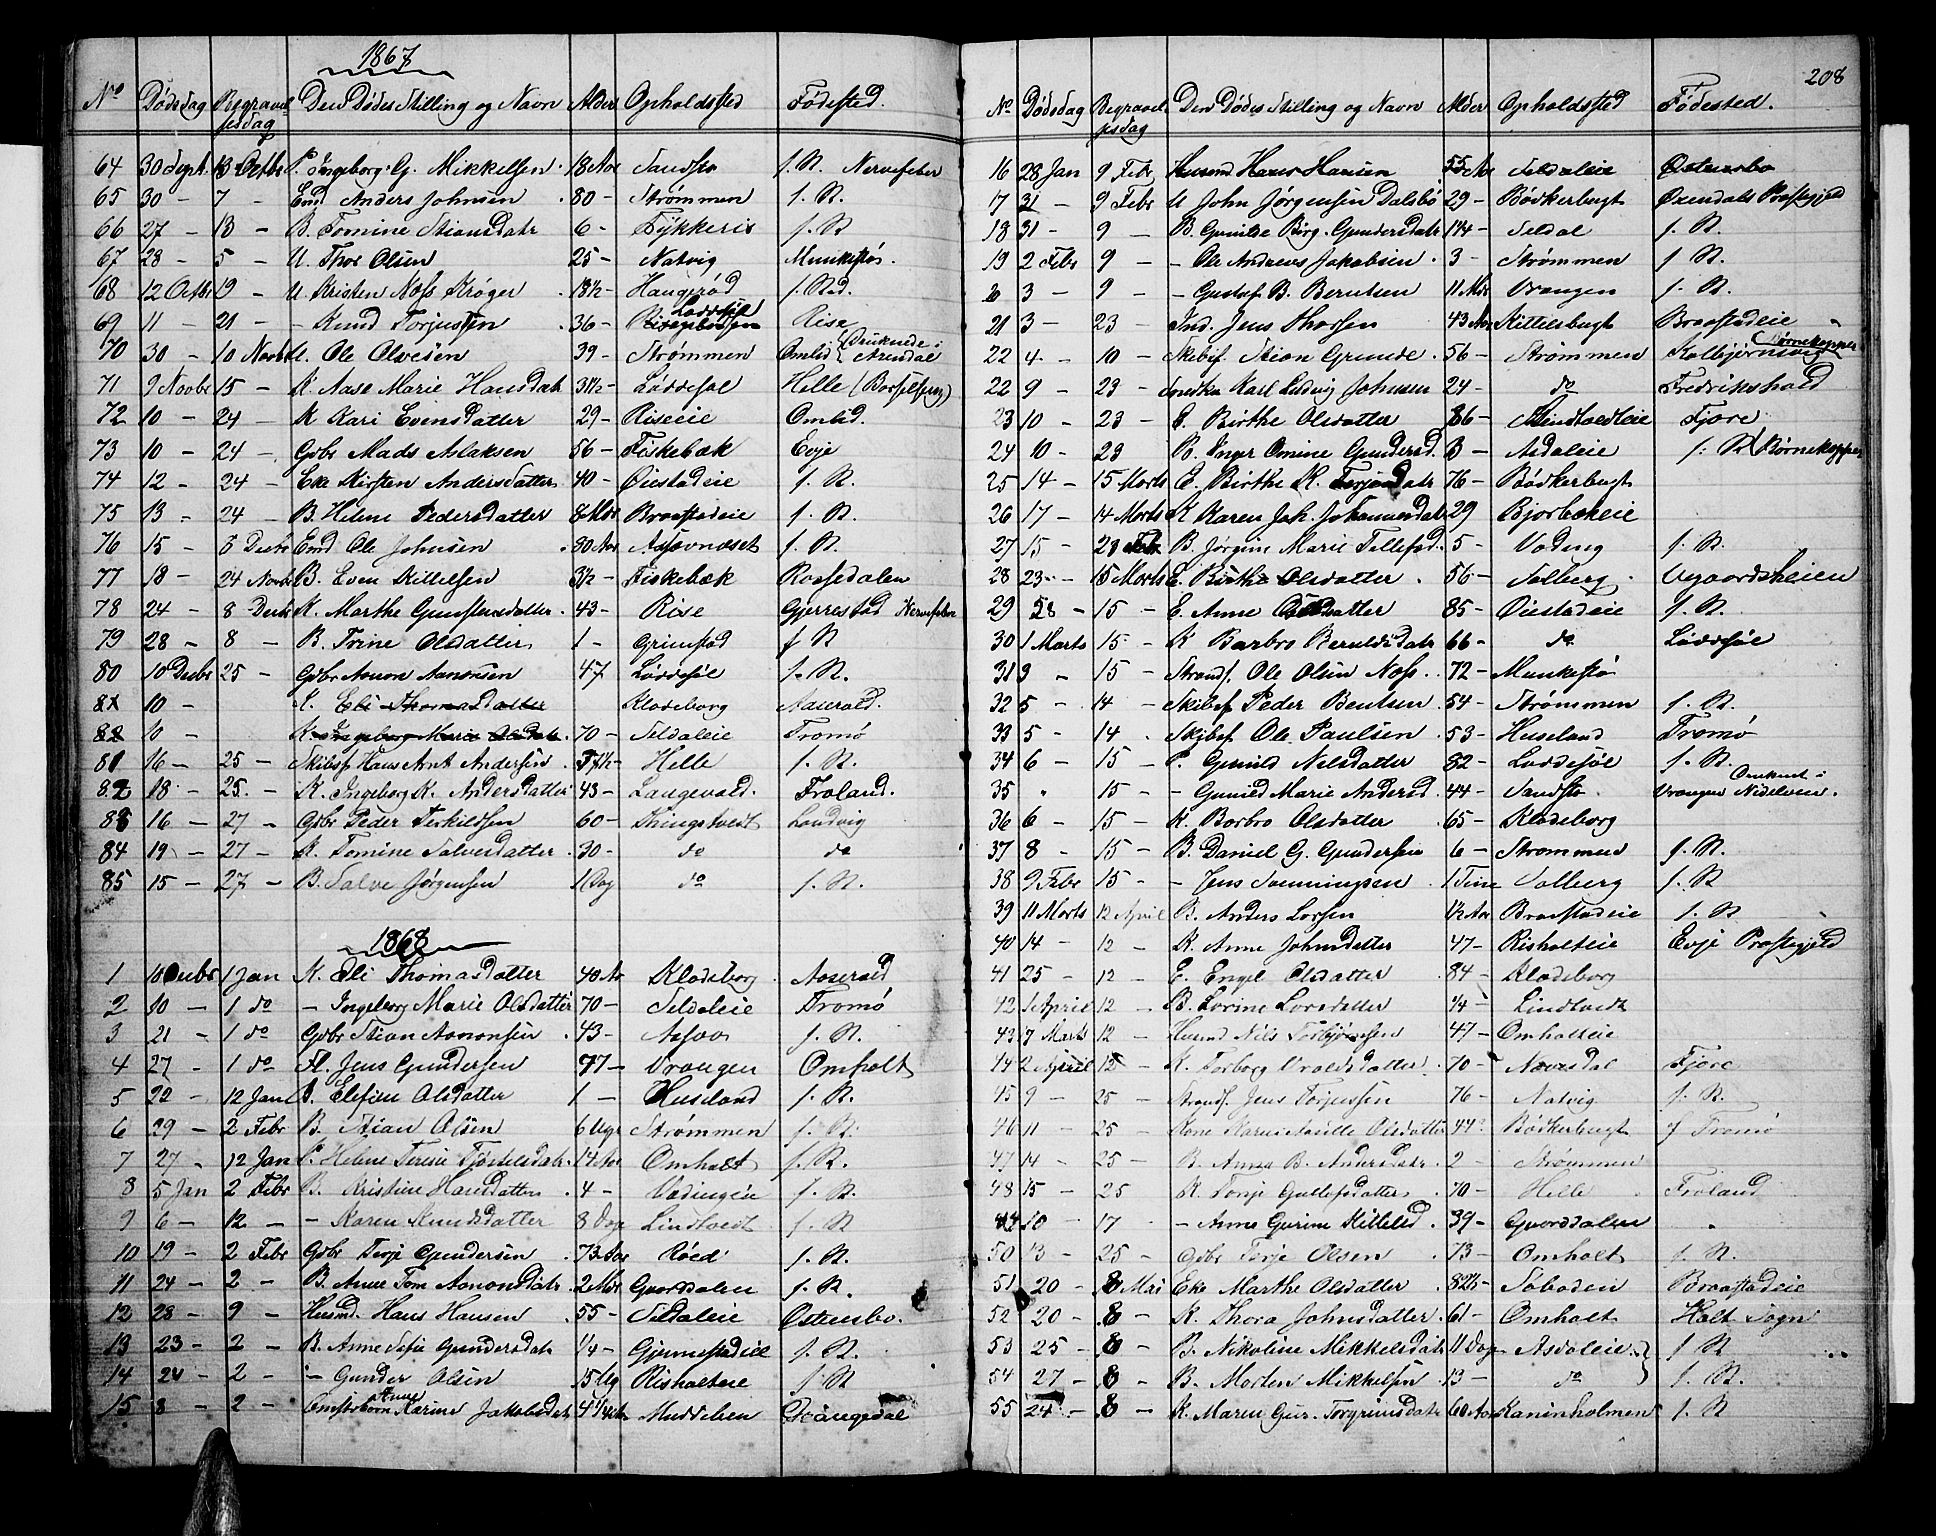 1867
No Dødsdag Begravelsesdag Den Dødes Stilling og Navn Alder Opholdsted Fødested.
64 30 Sept. 13 Octbr P. Ingeborg G. Mikkelsen 18 Aar Sandstø f. St. Nervefeber
65 30 - 7 - Emd Anders Johnsen 80 - Strømmen f. St.
66 27 - 13 - B. Tomine Stiansdatr 6 - Fykkeris f. St.
67 28 - 5 - U. Thor Olsen 25 - Natvig Munkestøs
68 12 Octbr 19 - U. Kristen Nofs Krøger 18½ - Haugerød f. Sted.
69 11 - 21 - - Knud Torjussen 36 - Løddesøl Rise
70 30 - 10 Novbr U. Ole Olvesen 39 - Strømmen Omlid (Druknede i Arendal
71 9 Novbr 15 - K Aase Marie Hansdatr 31½ - Løddesøl Helle (Barselseng)
72 10 - 24 - K Kari Evensdatter 29 - Riseeie Omlid.
73 10 - 24 - Gdbr Mads Aslaksen 56 - Fiskebæk Evje
74 12 - 24 - Eke Kirsten Andersdatter 40 - Øiestadeie f. St.
75 13 - 24 - B. Helene Pedersdatter 8 Mdr Braastadeie f. St.
76 15 - 8 Decbr Emd Ole Johnsen 80 Aar Assævnæset f. St.
77 18 - 24 Novbr B. Even Kittelsen 3½ - Fiskebæk Roassedalen
78 24 - 8 Decbr K. Marthe Gunstensdatter 43 - Rise Gjerrestad Nervefeber
79 28 - 8 - B. Trine Olsdatter 1 - Grimstad f St
80 10 Decbr 25 - Gdbr Aanon Aanonsen 47 Løddesøl f. St.
81 10 - K. Eli Thomasdatter Kladeborg Aaserald.
82 10 - K. Ingeborg Marie Olsdatr 70 - Seldaleie Tromø
81 16 - 25 - Skibsf Hans Arnt Andersen 71½ - Helle f. St.
82 18 - 25 - K. Ingeborg K. Andersdatter 43 - Langevold. Froland.
83 16 - 27 - Gdbr Peder Terkildsen 60 - Skingstvedt Landvig
84 19 - 27 - K. Tomine Salvesdatter 30 - do do
85 15 - 27 - B. Salve Jørgensen 1 Dag do f. St.
1868
1 10 Decbr 1 Jan K. Eli Thomasdatter 40 Aar Kladeborg Aaserald
2 10 - 1 do - Ingeborg Marie Olsdatter 70 - Seldaleie Tromø
3 21 - 1 do Gdbr Stian Aanonsen 43 - Assæv f. St.
4 27 - 1 do Fl. Jens Gundersen 77 - Vrængen Omholt
5 22 - 12 Jan Elefine Olsdatter 1 - Huseland f. St.
6 29 - 2 Febr B. Stian Olsen 6 Uger Strømmen f. St.
7 27 - 12 Jan P. Helene Terese Fjøstelsdatr 14 Aar Omholt f. St.
8 5 Jan 2 Febr B. Kristine Hansdatter 4 - Vadingeie f. St.
9 6 - 12 - - Karen Knudsdatter 8 Dage Lindtvedt f. St
10 19 - 2 Febr Gdbr Terje Gundersen 73 Aar Røed f. St.
11 24 - 2 - B. Anne Tom Aanonsdatr 2 Mdr Gvordalen f. St.
12 28 - 9 - Husmd. Hans Hansen 55 - Seldaleie Østensbo.
13 23 - 2 - B. Anne Sofie Gundersdatr ¼ - Gjennestadeie f. St.
14 24 - 2 - - Gunder Olsen 15 Ug Risholteie f. St
15 8 - 2 - Omførbarn Anne Karine Jakobsdatr 4¼ Muddelsen Drangedal
208
No Dødsdag Begravelsesdag Den Dødes Stilling og Navn Alder Opholdsted Fødested.
16 28 Jan 9 Febr Husmd Hans Hansen 55 Aar Seldaleie Østensbo
17 31 - 9 Febr U John Jørgensen Dalsbø 29 - Bødkerbugt Øxendals Prestegjeld
18 31 - 9 - B. Gunilde Birg. Gundersdatr 1¼ - Seldal f. St.
19 2 Febr 9 - - Ole Andreas Jakobsen 3 - Strømmen f. St.
20 3 - 9 - - Gustaf B. Berntsen 11 Mdr Vrangen f. St.
21 3 - 23 - Ind. Jens Thorsen 43 Aar Kittelsbugt Braastadeie
22 4 - 10 - Skibsf. Stian Grunde 56 - Strømmen Kolbjørnsvig Børnekopper
22 9 - 23 - Karl Ludvig Johnsen 24 - do Fredrikshald
23 10 - 23 - E. Birthe Olsdatter 86 - Mindtvedteie Fjøre
24 10 - 23 B. Inger Omine Gundersd. 3 - Asdaleie f: St (Børnekopper
25 14 - 15 Marts E. Birthe K. Terjesdatr 76 - Bødkerbugt
26 17 - 14 Marts K Karen Joh. Johannesdatr 29 Bjorbekeie
27 15 - 23 Febr B. Jørgine Marie Tellefsd. 5 - Vading f. St.
28 23 - 15 Marts E. Birthe Olsdatter 56 - Solberg Vegaardsheien
29 28 - 15 - E. Anne Olsdatter 85 - Øiestadeie f. St.
30 1 Marts 15 - K Barbro Berulsdatr 66 - do Løddesøl
31 3 15 - Strandf. Ole Olsen Nofs 72 - Munkestø
32 5 - 14 - Skibsf Peder Bentsen 54 - Strømmen f. St.
33 5 - 14 Skibsf Ole Paulsen 53 - Huseland Tromø
34 6 - 15 - P. Gunild Nilsdatter 82 - Løddesøl f. St.
35 15 - - Gunild Marie Andersd. 44 - Sandstø Omkom i Vrangen Nidelven.
36 6 - 15 - K. Barbro Olsdatter 65 - Kladeborg
37 8 - 15 - B. Daniel G. Gundersen 6 - Strømmen f. St.
38 9 Febr 15 - - Jens Svenningsen 1 Time Solberg f. St
39 11 Marts 12 April B. Anders Larsen 1½ Aar Braastadeie f. St
40 14 - 12 - K. Anne Johnsdatter 47 - Risholteie Evje Prestegjeld
41 25 - 12 - E. Engel Olsdatter 84 - Kladeborg
42 1 April 12 - B. Lovine Larsdatter ¼ - Lindtvedt
43 7 Marts 12 - Husmd Nils Torbjørnsen 47 - Omholteie
44 2 April 12 - K. Torborg Oraldsdatter 70 - Næversdal Fjøre
45 9 - 25 - Strandf. Jens Torjussen 76 - Natvig f. St.
46 11 - 25 - Kone Karen Olsdatter 44 Bødkerbugt f Tromø
47 14 - 25 - B. Anna B. Andersdatr. 2 - Strømmen
48 15 - 25 K. Tonje Gullefsdatter 70 - Helle Froland
49 10 - 17 - Anne Gurine Kittelsd. 39 - Gvorddalen
50 13 - 25 - Gdbr Terje Olsen 73 - Omholt f. St.
51 20 - 8 Mai Eke Marthe Olsdatter 82½ - Søbødeie Braastadeie
52 20 - 8 - K. Thora Johnsdatter 61 - Omholt Holt Sogn
53 25 - 8 - B. Nikoline Mikkelsdatr 11 Dage Asdaleie f. St
54 27 - 8 - B. Morten Mikkelsen 13 - do f. St.
55 24 - 8 - K. Maren Gur. Torgrimsdatr 60 Aar Kaninholmen f. St